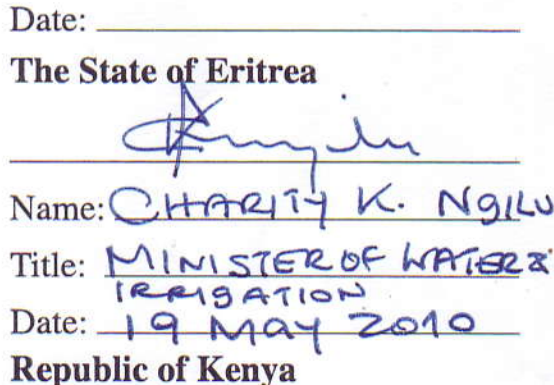 Date:
The State of Eritrea
Name: CHARITY K. NGILU
Title: MINISTER OF WATER &
IRRIGATION
Date: 19 MAY 2010
Republic of Kenya